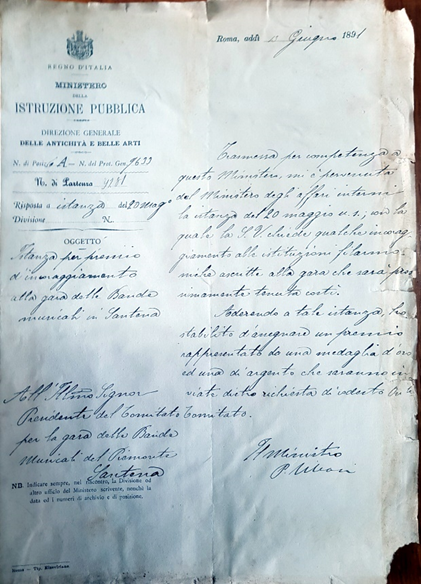 REGNO D'ITALIA
MINISTERO
DELLA
ISTRUZIONE PUBBLICA
DIREZIONE GENERALE
DELLE ANTICHITÀ E BELLE ARTI
N. di Posiz. A - N. del Prot. Gen. 9633
No. di Partenza
Risposta a istanza del 20 magg
Divisione N.
OGGETTO
Istanza per premio
d'incoraggiamento
alla gara delle Bande
musicali in Santena
All'Illmo Signor
Presidente del Comitato
per la gara delle Bande
Musicali del Piemonte
Santena
NB. Indicare sempre, nel riscontro, la Divisione od
altro ufficio del Ministero scrivente, nonchè la
data ed i numeri di archivio e di posizione.
Roma, addì Giugno 1891
Trasmessa per competenza a
questo Ministero, mi è pervenuta
dal Ministero degli affari interni
la istanza del 20 maggio u. s., con la
quale la S. V. chiede qualche incorag
giamento alle istituzioni filarmo
niche ascritte alla gara che sarà pros
simamente tenuta costì.
Aderendo a tale istanza, ho
stabilito d'assegnare un premio
rappresentato da una medaglia d'oro
ed una di argento che saranno in
viate dietro richiesta di codesto
Comitato.
Il Ministro